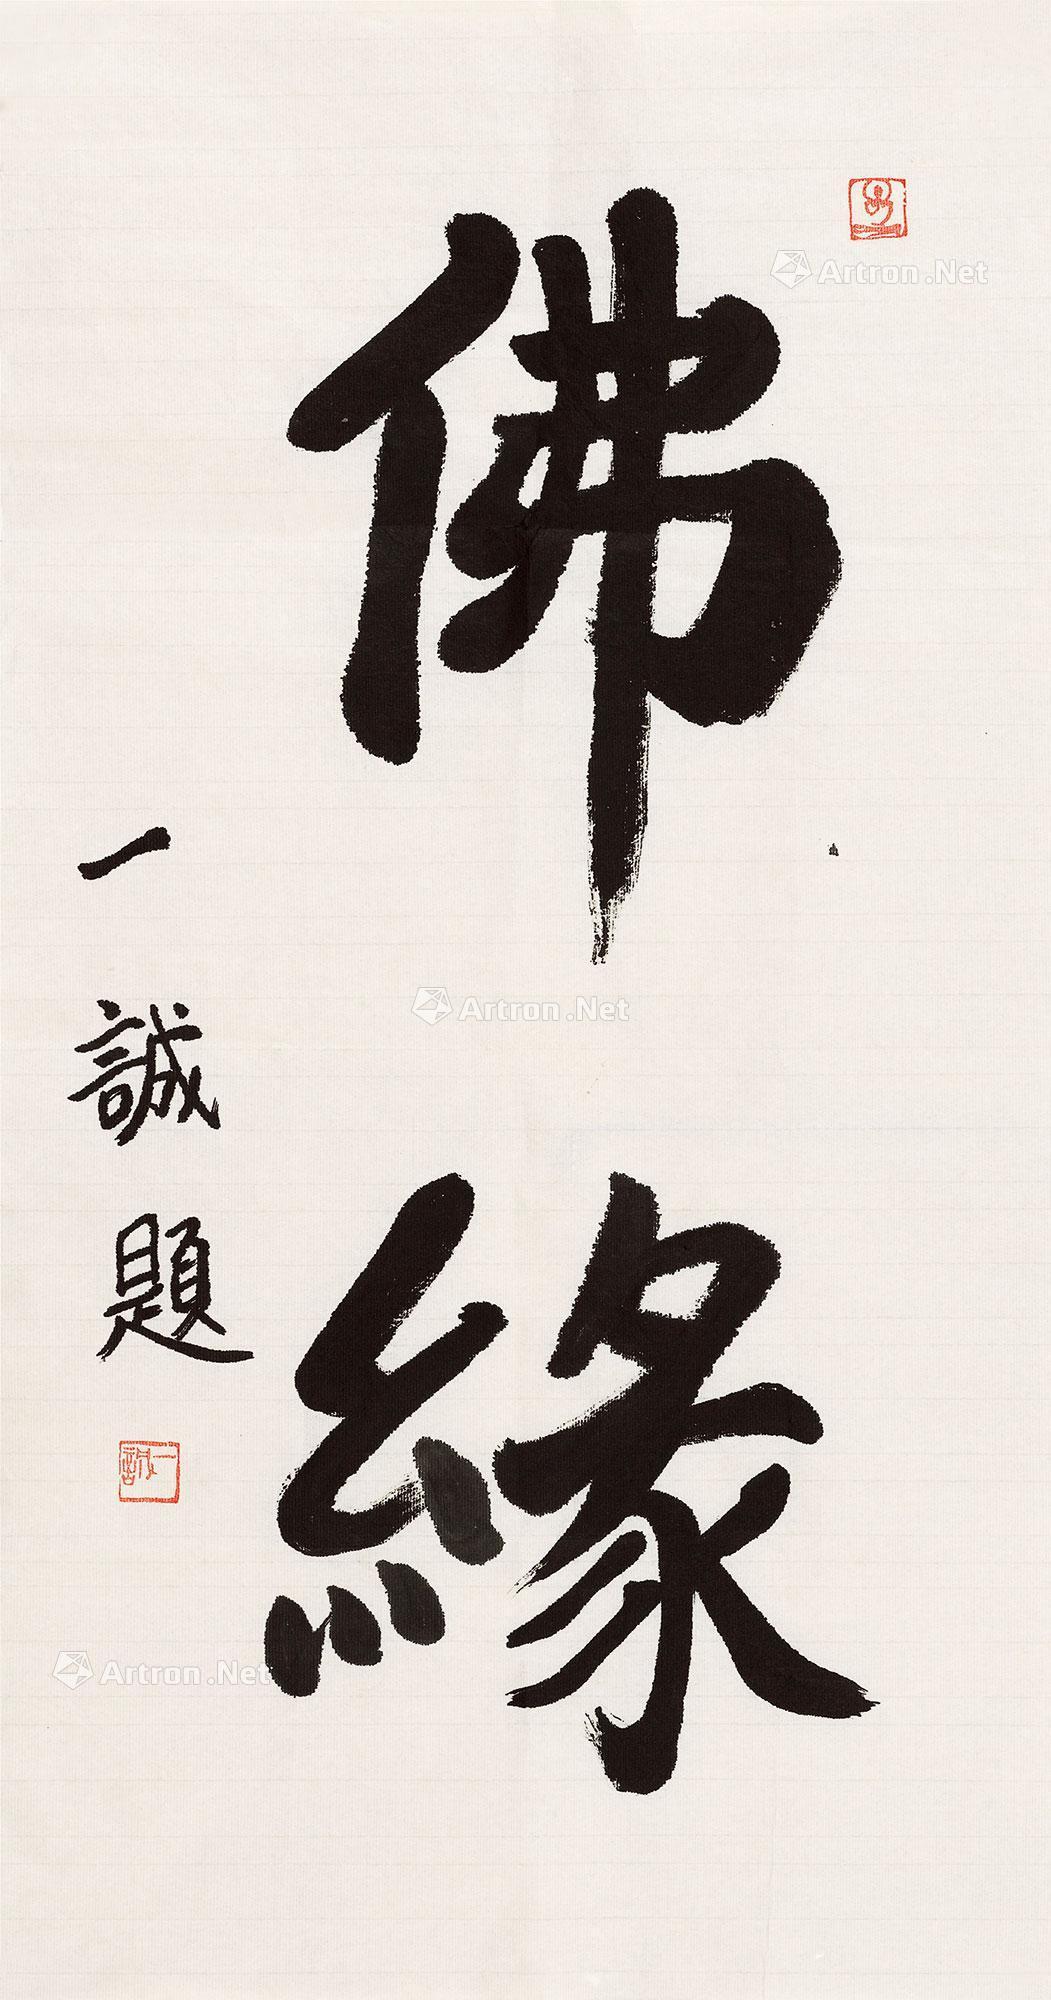 佛緣
一誠題
一誠
Artron.Net
Artron.Net
Artron.Net